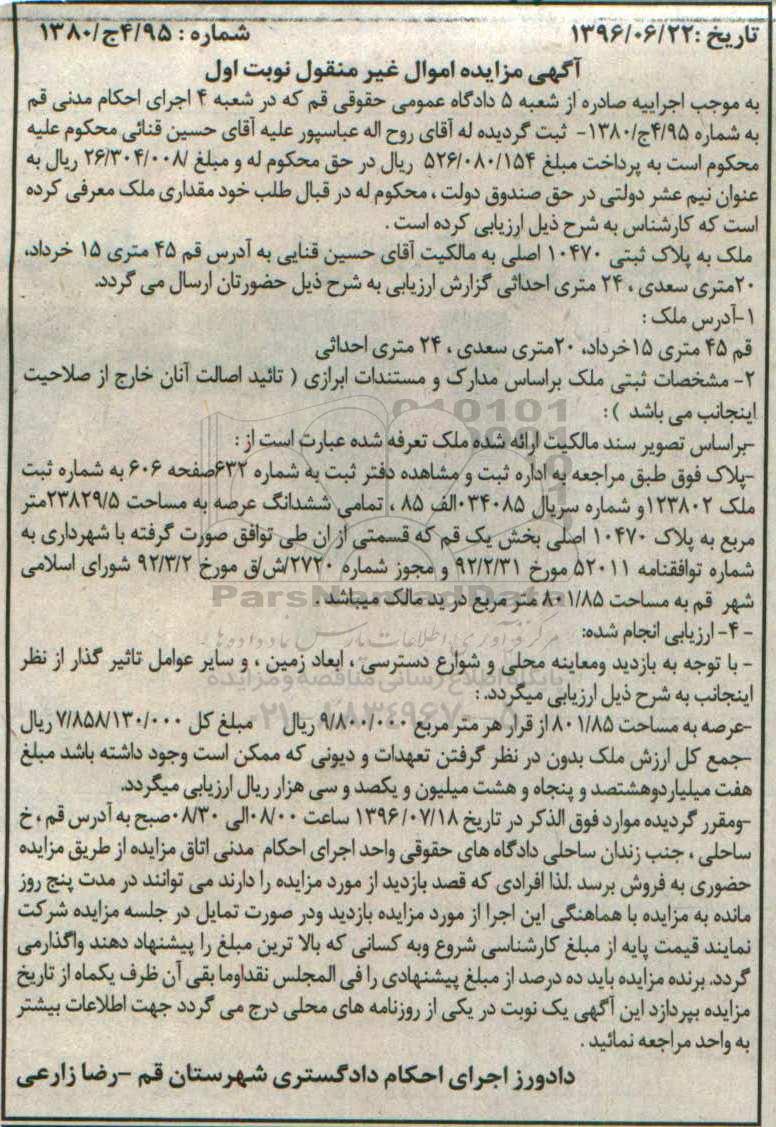 تاریخ :۱۳۹۶/۰۶/۲۲ شماره : ۴/۹۵ج/۱۳۸۰
آگهی مزایده اموال غیر منقول نوبت اول
به موجب اجراییه صادره از شعبه ۵ دادگاه عمومی حقوقی قم که در شعبه ۴ اجرای احکام مدنی قم
به شماره ۴/۹۵ج/۱۳۸۰- ثبت گردیده له آقای روح اله عباسپور علیه آقای حسین قنائی محکوم علیه
محکوم است به پرداخت مبلغ ۵۲۶/۰۸۰/۱۵۴ ریال در حق محکوم له و مبلغ /۲۶/۳۰۴/۰۰۸ ریال به
عنوان نیم عشر دولتی در حق صندوق دولت ، محکوم له در قبال طلب خود مقداری ملک معرفی کرده
است که کارشناس به شرح ذیل ارزیابی کرده است .
ملک به پلاک ثبتی ۱۰۴۷۰ اصلی به مالکیت آقای حسین قنایی به آدرس قم ۴۵ متری ۱۵ خرداد،
۲۰متری سعدی ، ۲۴ متری احداثی گزارش ارزیابی به شرح ذیل حضورتان ارسال می گردد.
۱-آدرس ملک :
قم ۴۵ متری ۱۵خرداد، ۲۰متری سعدی ، ۲۴ متری احداثی
۲- مشخصات ثبتی ملک براساس مدارک و مستندات ابرازی ( تائید اصالت آنان خارج از صلاحیت
اینجانب می باشد ) :
-براساس تصویر سند مالکیت ارائه شده ملک تعرفه شده عبارت است از :
-پلاک فوق طبق مراجعه به اداره ثبت و مشاهده دفتر ثبت به شماره ۶۳۲صفحه ۶۰۶ به شماره ثبت
ملک ۱۲۳۸۰۲و شماره سریال ۰۳۴۰۸۵الف ۸۵ ، تمامی ششدانگ عرصه به مساحت ۲۳۸۲۹/۵متر
مربع به پلاک ۱۰۴۷۰ اصلی بخش یک قم که قسمتی از ان طی توافق صورت گرفته با شهرداری به
شماره توافقنامه ۵۲۰۱۱ مورخ ۹۲/۲/۳۱ و مجوز شماره ۲۷۲۰/ش/ق مورخ ۹۲/۳/۲ شورای اسلامی
شهر قم به مساحت ۸۰۱/۸۵ متر مربع در ید مالک میباشد .
- ۴- ارزیابی انجام شده:
- با توجه به بازدید ومعاینه محلی و شوارع دسترسی ، ابعاد زمین ، و سایر عوامل تاثیر گذار از نظر
اینجانب به شرح ذیل ارزیابی میگردد. :
-عرصه به مساحت ۸۰۱/۸۵ از قرار هر متر مربع ۹/۸۰۰/۰۰۰ ریال مبلغ کل ۷/۸۵۸/۱۳۰/۰۰۰ ریال
-جمع کل ارزش ملک بدون در نظر گرفتن تعهدات و دیونی که ممکن است وجود داشته باشد مبلغ
هفت میلیاردوهشتصد و پنجاه و هشت میلیون و یکصد و سی هزار ریال ارزیابی میگردد.
-ومقرر گردیده موارد فوق الذکر در تاریخ ۱۳۹۶/۰۷/۱۸ ساعت ۰۸/۰۰الی ۰۸/۳۰صبح به آدرس قم ، خ
ساحلی ، جنب زندان ساحلی دادگاه های حقوقی واحد اجرای احکام مدنی اتاق مزایده از طریق مزایده
حضوری به فروش برسد .لذا افرادی که قصد بازدید از مورد مزایده را دارند می توانند در مدت پنج روز
مانده به مزایده با هماهنگی این اجرا از مورد مزایده بازدید ودر صورت تمایل در جلسه مزایده شرکت
نمایند قیمت پایه از مبلغ کارشناسی شروع وبه کسانی که بالا ترین مبلغ را پیشنهاد دهند واگذارمی
گردد. برنده مزایده باید ده درصد از مبلغ پیشنهادی را فی المجلس نقداوما بقی آن ظرف یکماه از تاریخ
مزایده بپردازد این آگهی یک نوبت در یکی از روزنامه های محلی درج می گردد جهت اطلاعات بیشتر
به واحد مراجعه نمائید .
دادورز اجرای احکام دادگستری شهرستان قم -رضا زارعی
ParsNamadData
مرکز فن‌آوری اطلاعات پارس نماد داده‌ها
پایگاه اطلاع رسانی مناقصه و مزایده